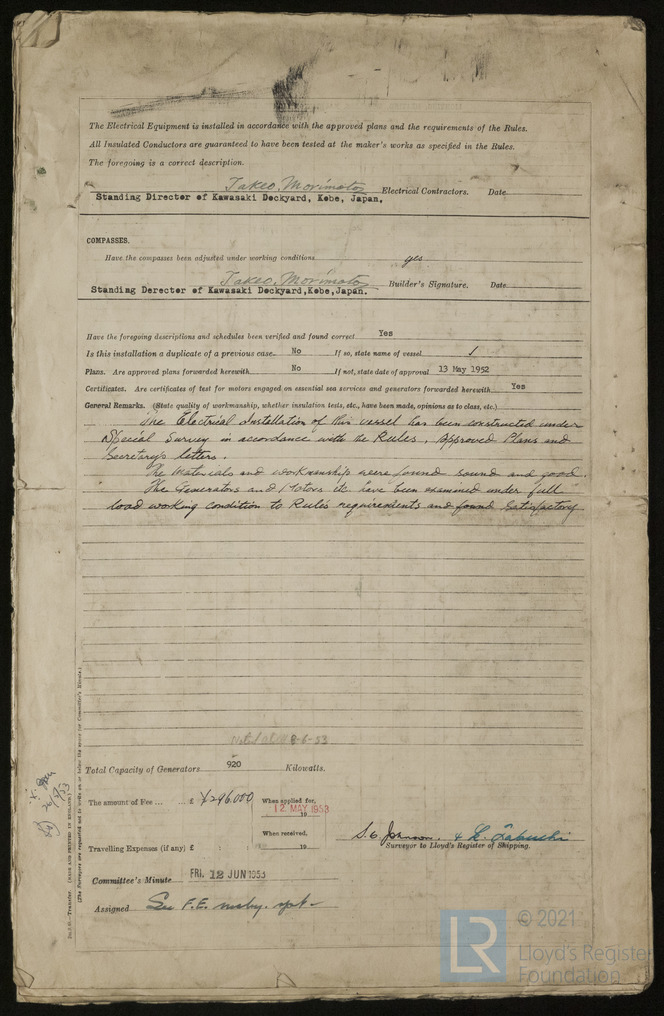 The Electrical Equipment is installed in accordance with the approved plans and the requirements of the Rules.
All Insulated Conductors are guaranteed to have been tested at the maker's works as specified in the Rules.
The foregoing is a correct description.
Takeo. Morimoto Electrical Contractors. Date
Standing Director of Kawasaki Dockyard, Kobe, Japan.
COMPASSES.
Have the compasses been adjusted under working conditions yes
Takeo. Morimoto Builder's Signature. Date
Standing Derector of Kawasaki Dockyard,Kobe,Japan.
Have the foregoing descriptions and schedules been verified and found correct Yes
Is this installation a duplicate of a previous case No If so, state name of vessel /
Plans. Are approved plans forwarded herewith No If not, state date of approval 13 May 1952
Certificates. Are certificates of test for motors engaged on essential sea services and generators forwarded herewith Yes
General Remarks. (State quality of workmanship, whether insulation tests, etc., have been made, opinions as to class, etc.)
The Electrical Installation of this vessel has been constructed under
Special Survey in accordance with the Rules, Approved Plans and
Secretary's letters.
The Materials and workmanship were found sound and good.
The Generators and Motors etc have been examined under full
load working condition to Rules requirements and found satisfactory
Noted 8-6-53
Total Capacity of Generators 920 Kilowatts.
The amount of Fee ... ... £ ¥296,000 When applied for,
12 MAY 1953
19
When received,
Travelling Expenses (if any) £ : : 19
S. G Johnson. & Tabuchi
Surveyor to Lloyd's Register of Shipping.
Committee's Minute FRI. 12 JUN 1953
Assigned See F.E. mchy. rpt
(MADE AND PRINTED IN ENGLAND.)
(The Surveyors are requested not to write on or below the space for Committee's Minute.)
© 2021
LR Lloyd's Register
Foundation